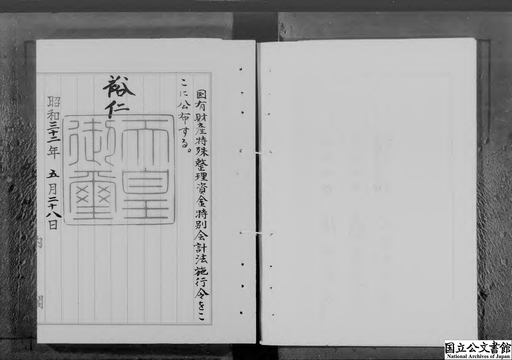 国有財産特殊整理資金特別会計法施行令をこ
こに公布する。
裕仁
天皇
御璽
昭和三十二年 五月二十八日
内閣
国立公文書館
National Archives of Japan